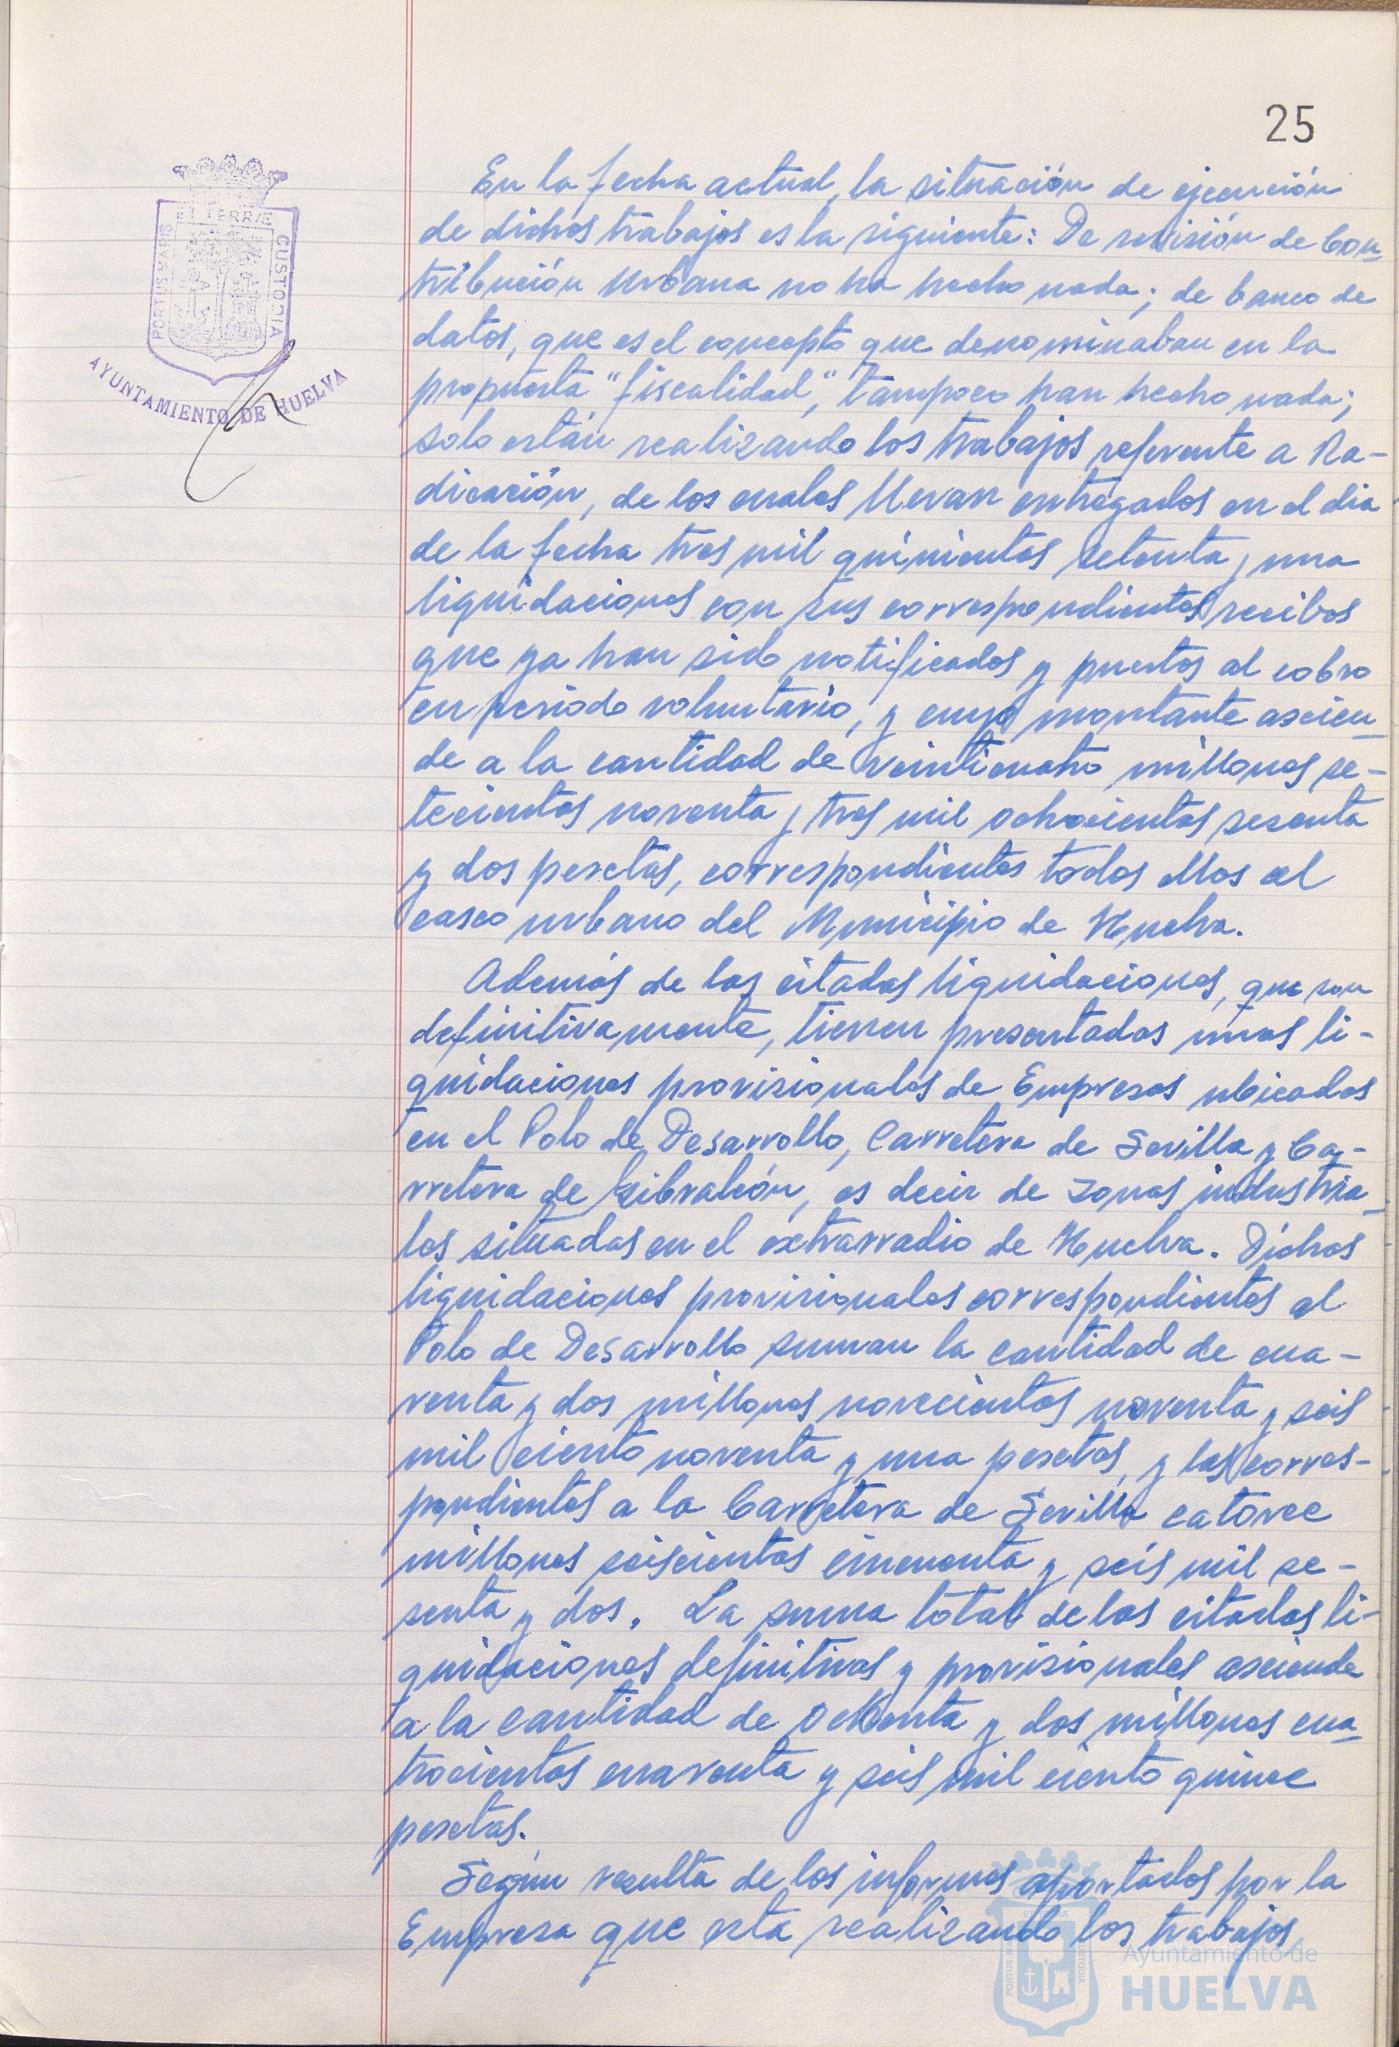 25
En la fecha actual, la situación de ejecución
de dichos trabajos es la siguiente: De revisión de Con-
tribución Urbana no ha hecho nada; de banco de
datos, que es el concepto que denominaban en la
propuesta "fiscalidad", tampoco han hecho nada;
solo están realizando los trabajos referente a Ra-
dicación, de los cuales llevan entregados en el dia
de la fecha tres mil quinientos setenta y una
liquidaciones con sus correspondientes recibos
que ya han sido notificados y puestos al cobro
en periodo voluntario, y cuyo montante ascien-
de a la cantidad de veinticuatro millones se-
tecientos noventa y tres mil ochocientos sesenta
y dos pesetas, correspondientes todos ellos al
casco urbano del Municipio de Huelva.
Además de las citadas liquidaciones, que son
definitivamente, tienen presentadas unas li-
quidaciones provisionales de Empresas ubicadas
en el Polo de Desarrollo, Carretera de Sevilla y Ca-
rretera de Gibraleón, es decir de zonas industria-
les situadas en el extrarradio de Huelva. Dichas
liquidaciones provisionales correspondientes al
Polo de Desarrollo suman la cantidad de cua-
renta y dos millones novecientos noventa y seis
mil ciento noventa y una pesetas, y las corres-
pondientes a la Carretera de Sevilla catorce
millones seiscientos cincuenta y seis mil se-
senta y dos. La suma total de las citadas li-
quidaciones definitivas y provisionales asciende
a la cantidad de ochenta y dos millones cua-
trocientos cuarenta y seis mil ciento quince
pesetas.
Según resulta de los informes aportados por la
Empresa que esta realizando los trabajos
PORTUS MARIS ET TERRÆ CUSTODIA
AYUNTAMIENTO DE HUELVA
Ayuntamiento de
HUELVA